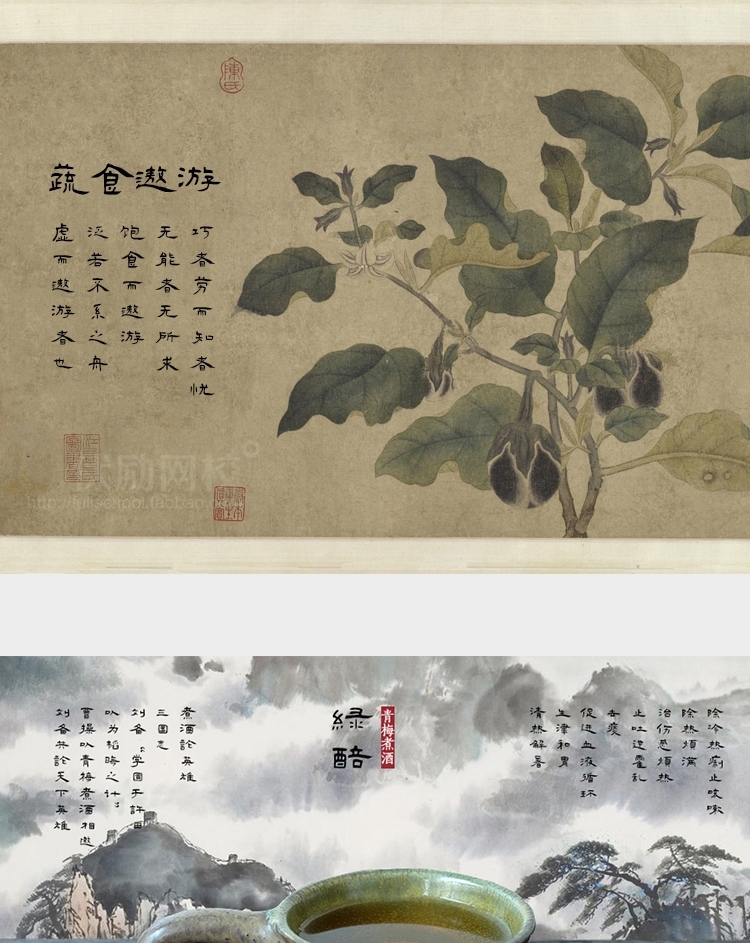 陳氏
蔬食遨游
巧者劳而知者忧
无能者无所求
饱食而遨游
泛若不系之舟
虚而遨游者也
除冷热痢止咳嗽
除热烦满
治伤感烦热
止吐逆霍乱
去痰
促进血液循环
生津和胃
清热解暑
青梅煮酒
緑醅
煮酒论英雄
三国志
刘备：学圃于许田
以为韬晦之计；
曹操以青梅煮酒相邀
刘备共论天下英雄